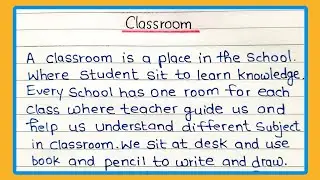 Classroom
A classroom is a place in the school.
Where student sit to learn knowledge.
Every school has one room for each
class where teacher guide us and
help us understand different subject
in classroom. We sit at desk and use
book and pencil to write and draw.